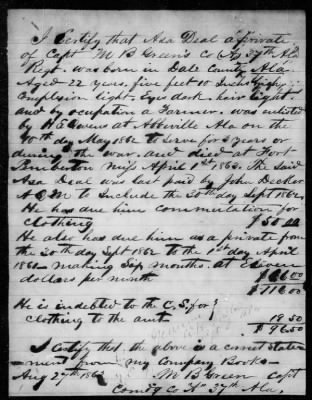 I Certify that Asa Deal a private
of Capt M B Green's Co (A) 37th Ala
Regt. was born in Dale County Ala.
Aged 22 years five feet 10 Inches high
Complexion light, Eyes dark, hair light
and by occupation a Farmer. was enlisted
by A E Owens at Abbeville Ala on the
10th day May 1862 to serve for 3 years or
during the war. and died at Fort
Pemberton Miss April 1st 1863. The said
Asa Deal was last paid by John Decker
A Q M to Include the 30th day Sept 1862.
He has due him commutation for
Clothing $50.00
He also has due him as a private from
the 30th day Sept 1862 to the 1st day April
1863 making Six months. at Eleven
dollars per month $66.00
$116.00
He is indebted to the C. S. for
clothing to the amt 19.50
$96.50
I Certify that the above is a correct state-
ment from my Company Books
Aug 27th 1863
M B Green Capt
Comdg Co "A" 37th Ala.